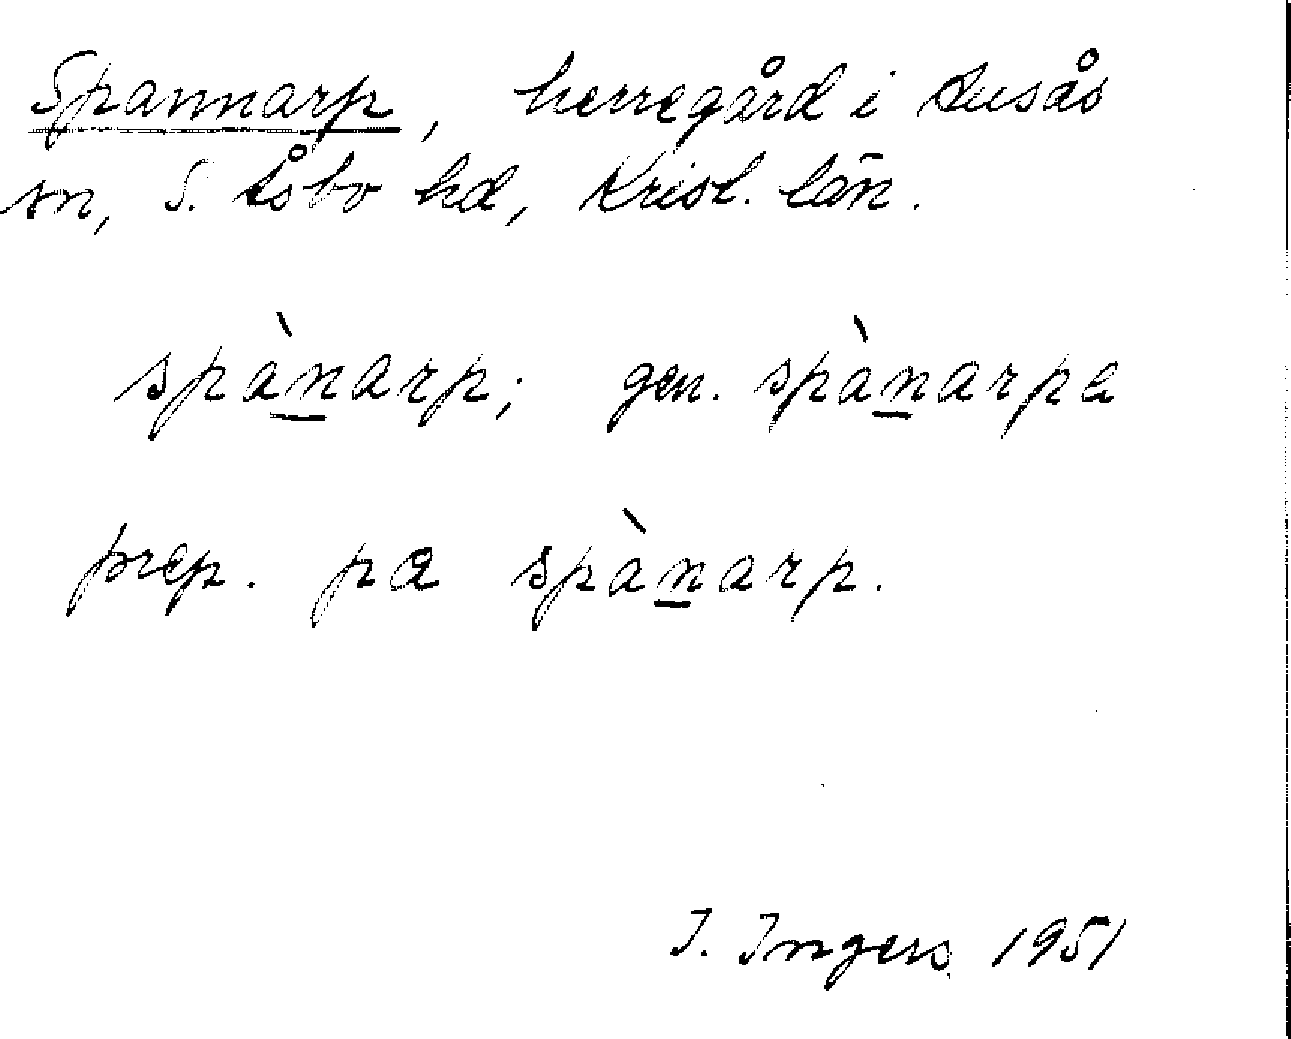 Spannarp, herregård i Ausås
sn, S. Åsbo hd, Krist. län.
spànarp; gen. spànarpa
prep. pa spànarp.
I. Ingers 1951